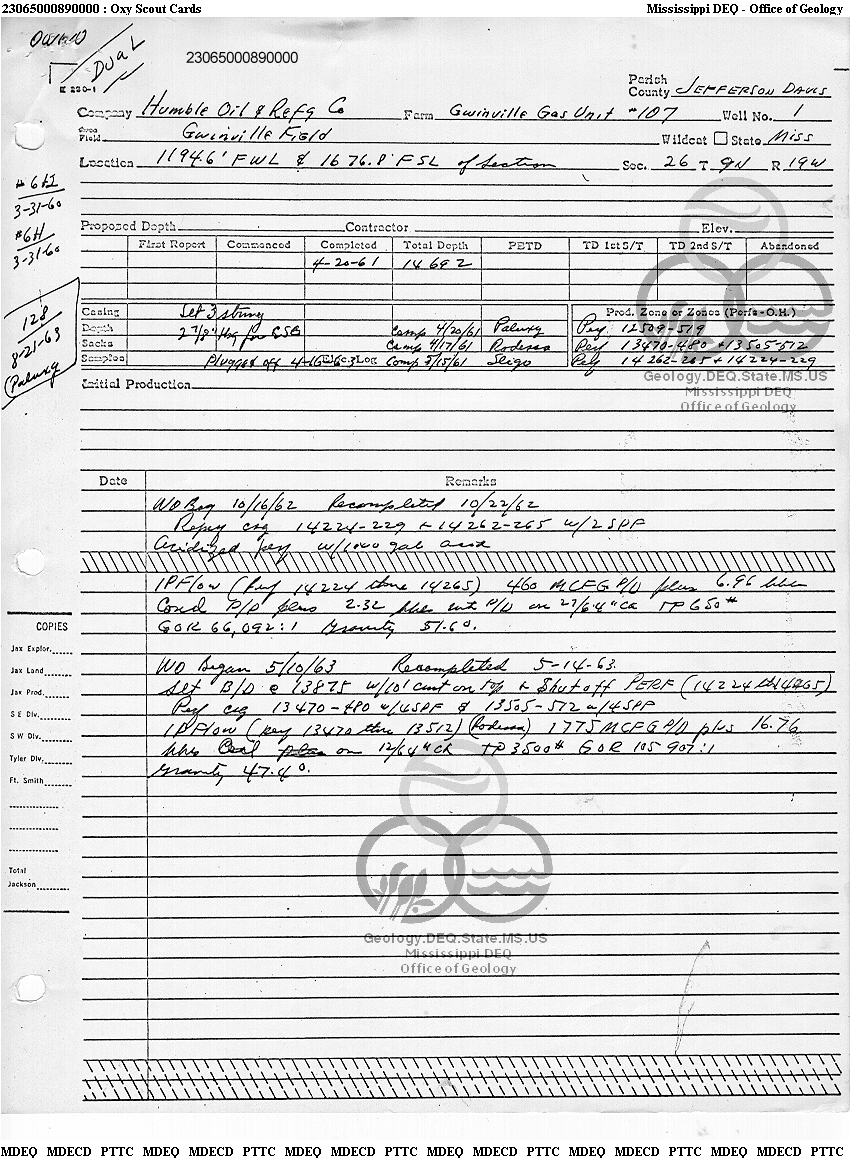 23065000890000 : Oxy Scout Cards Mississippi DEQ - Office of Geology
OWWO
DUAL
23065000890000
E 220-1
Parish
County JEFFERSON DAVIS
Company Humble Oil & Refg Co Farm Gwinville Gas Unit #107 Well No. 1
Area
Field Gwinville Field Wildcat State Miss
Location 1194.6' FWL & 1676.8' FSL of Section Sec. 26 T 9N R 19W
3-31-60
#6H
3-31-60
128
8-21-63
(Paluxy
Proposed Depth Contractor Elev.
First Report Commenced Completed Total Depth PBTD TD 1st S/T TD 2nd S/T Abandoned
4-20-61 14692
Casing Set 3 string Prod. Zone or Zones (Perfs-O.H.)
Depth 2 7/8" tbg for CSG Comp 4/20/61 Paluxy Perf 12509-519
Sacks Comp 4/17/61 Rodessa Perf 13470-480 + 13505-512
Samples Plugged off 4-16-63 Elec. Log Comp 5/15/61 Sligo Perf 14262-265 + 14224-229
Initial Production
Geology.DEQ.State.MS.US
Mississippi DEQ
Office of Geology
Date Remarks
WO Beg 10/16/62 Recompleted 10/22/62
Reperf csg 14224-229 + 14262-265 w/2SPF
Acidized perf w/1000 gal acid
IPFlow (Perf 14224 thru 14265) 460 MCFG P/D plus 6.96 bbls
Cond P/D plus 2.32 bbls wtr P/D on 27/64" CK TP 650#
GOR 66,092:1 Gravity 51.6°.
WO Began 5/10/63 Recompleted 5-14-63.
Set B/P @ 13875 w/10' cmt on top & Shut off PERF (14224 thru 14265)
Perf csg 13470-480 w/4SPF & 13505-512 w/4SPF
IPFlow (Perf 13470 thru 13512) (Rodessa) 1775 MCFG P/D plus 16.76
bbls Cond on 12/64" CK TP 3500# GOR 105 907:1
Gravity 47.4°.
COPIES
Jax Explor.
Jax Land
Jax Prod.
S E Div.
S W Div.
Tyler Div.
Ft. Smith
Total
Jackson
Geology.DEQ.State.MS.US
Mississippi DEQ
Office of Geology
MDEQ MDECD PTTC MDEQ MDECD PTTC MDEQ MDECD PTTC MDEQ MDECD PTTC MDEQ MDECD PTTC MDEQ MDECD PTTC